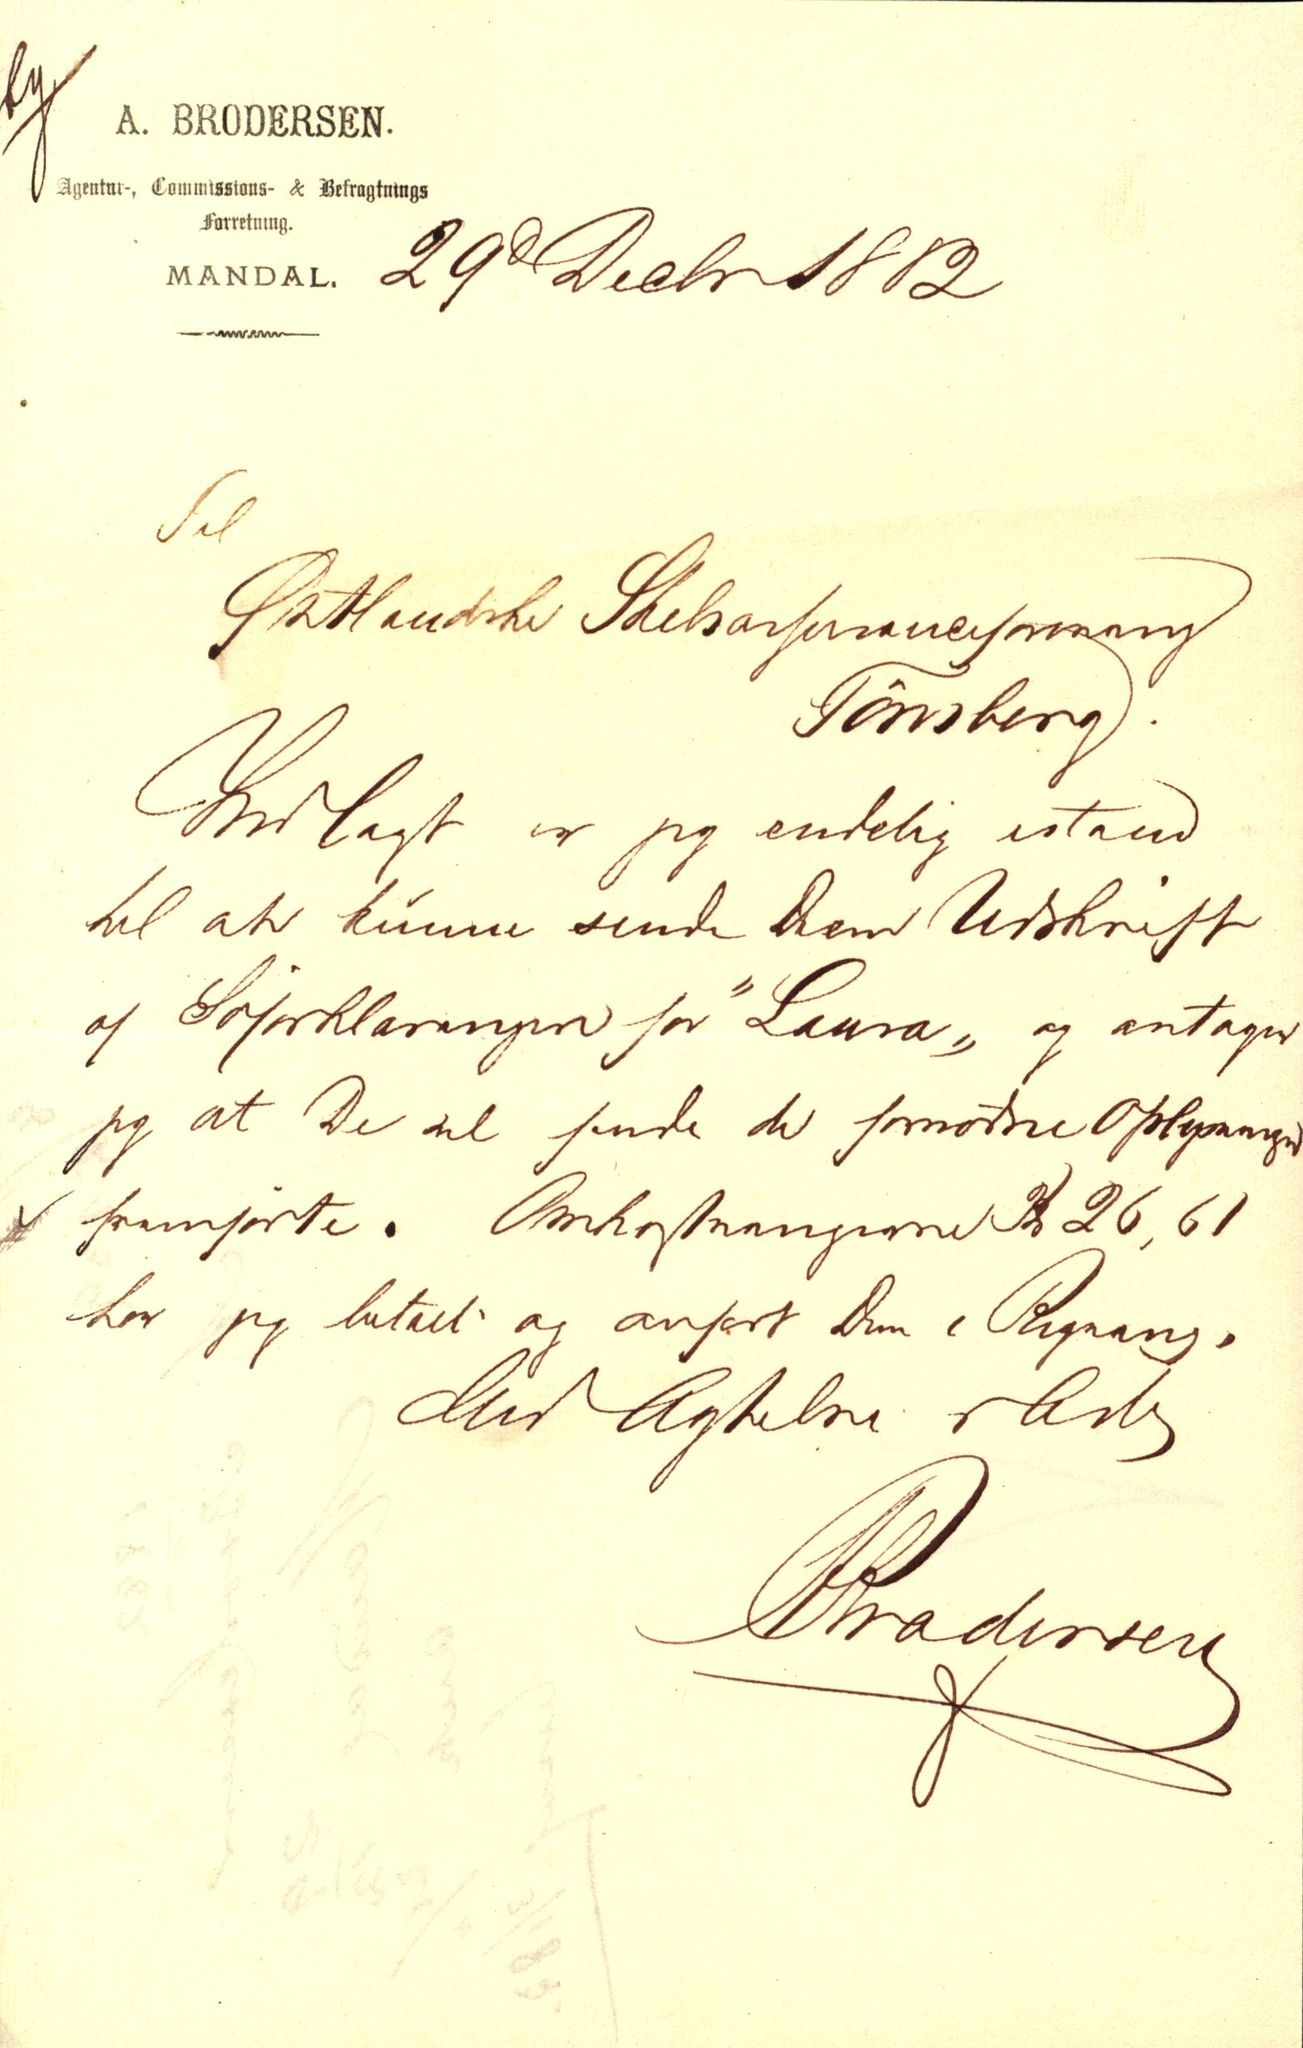 A. BRODERSEN.
Agentur-, Commissions- & Befragtnings
Forretning.
MANDAL. 29d Decbr 1882
Til
Østlandske Skibsassuranceforening
Tönsberg.
Indlagt er jeg endelig istand
til at kunne sende Dem Udskrift
af Søforklaringen for "Laura" og antager
jeg at De vil finde de fornødne Oplysninger
fremførte. Omkostningerne Kr 26,61
har jeg betalt og anført Dem i Regning.
Med Agtelse
ABrodersen